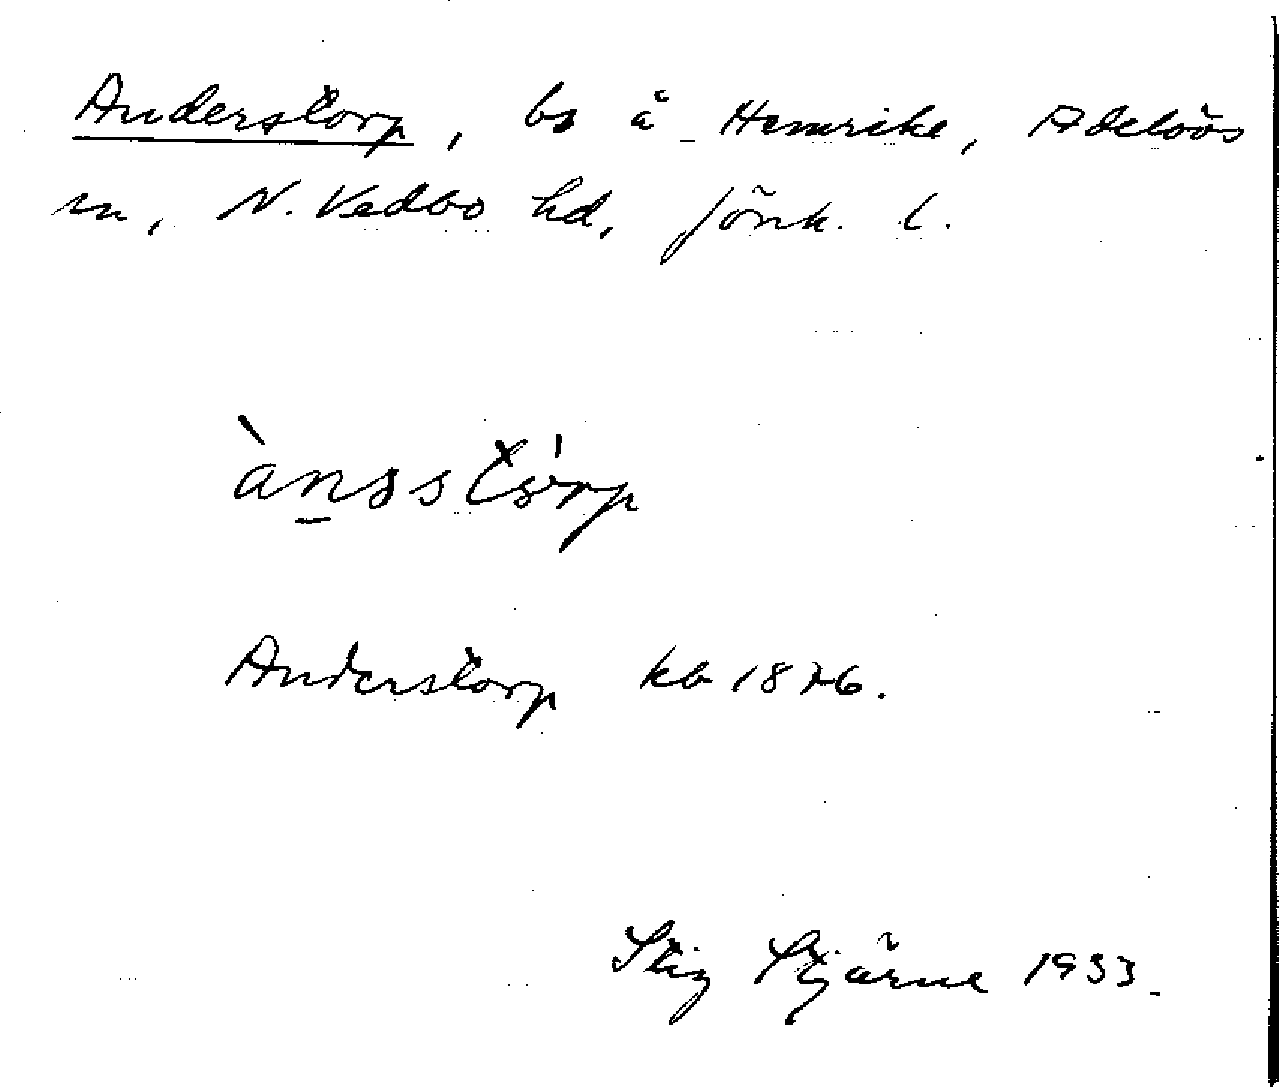 Anderstorp, bs å Hemrike, Adelövs
sn, N. Vedbo hd, Jönk. l.
Anderstorp kb 1876.
Stig Stjärne 1933.